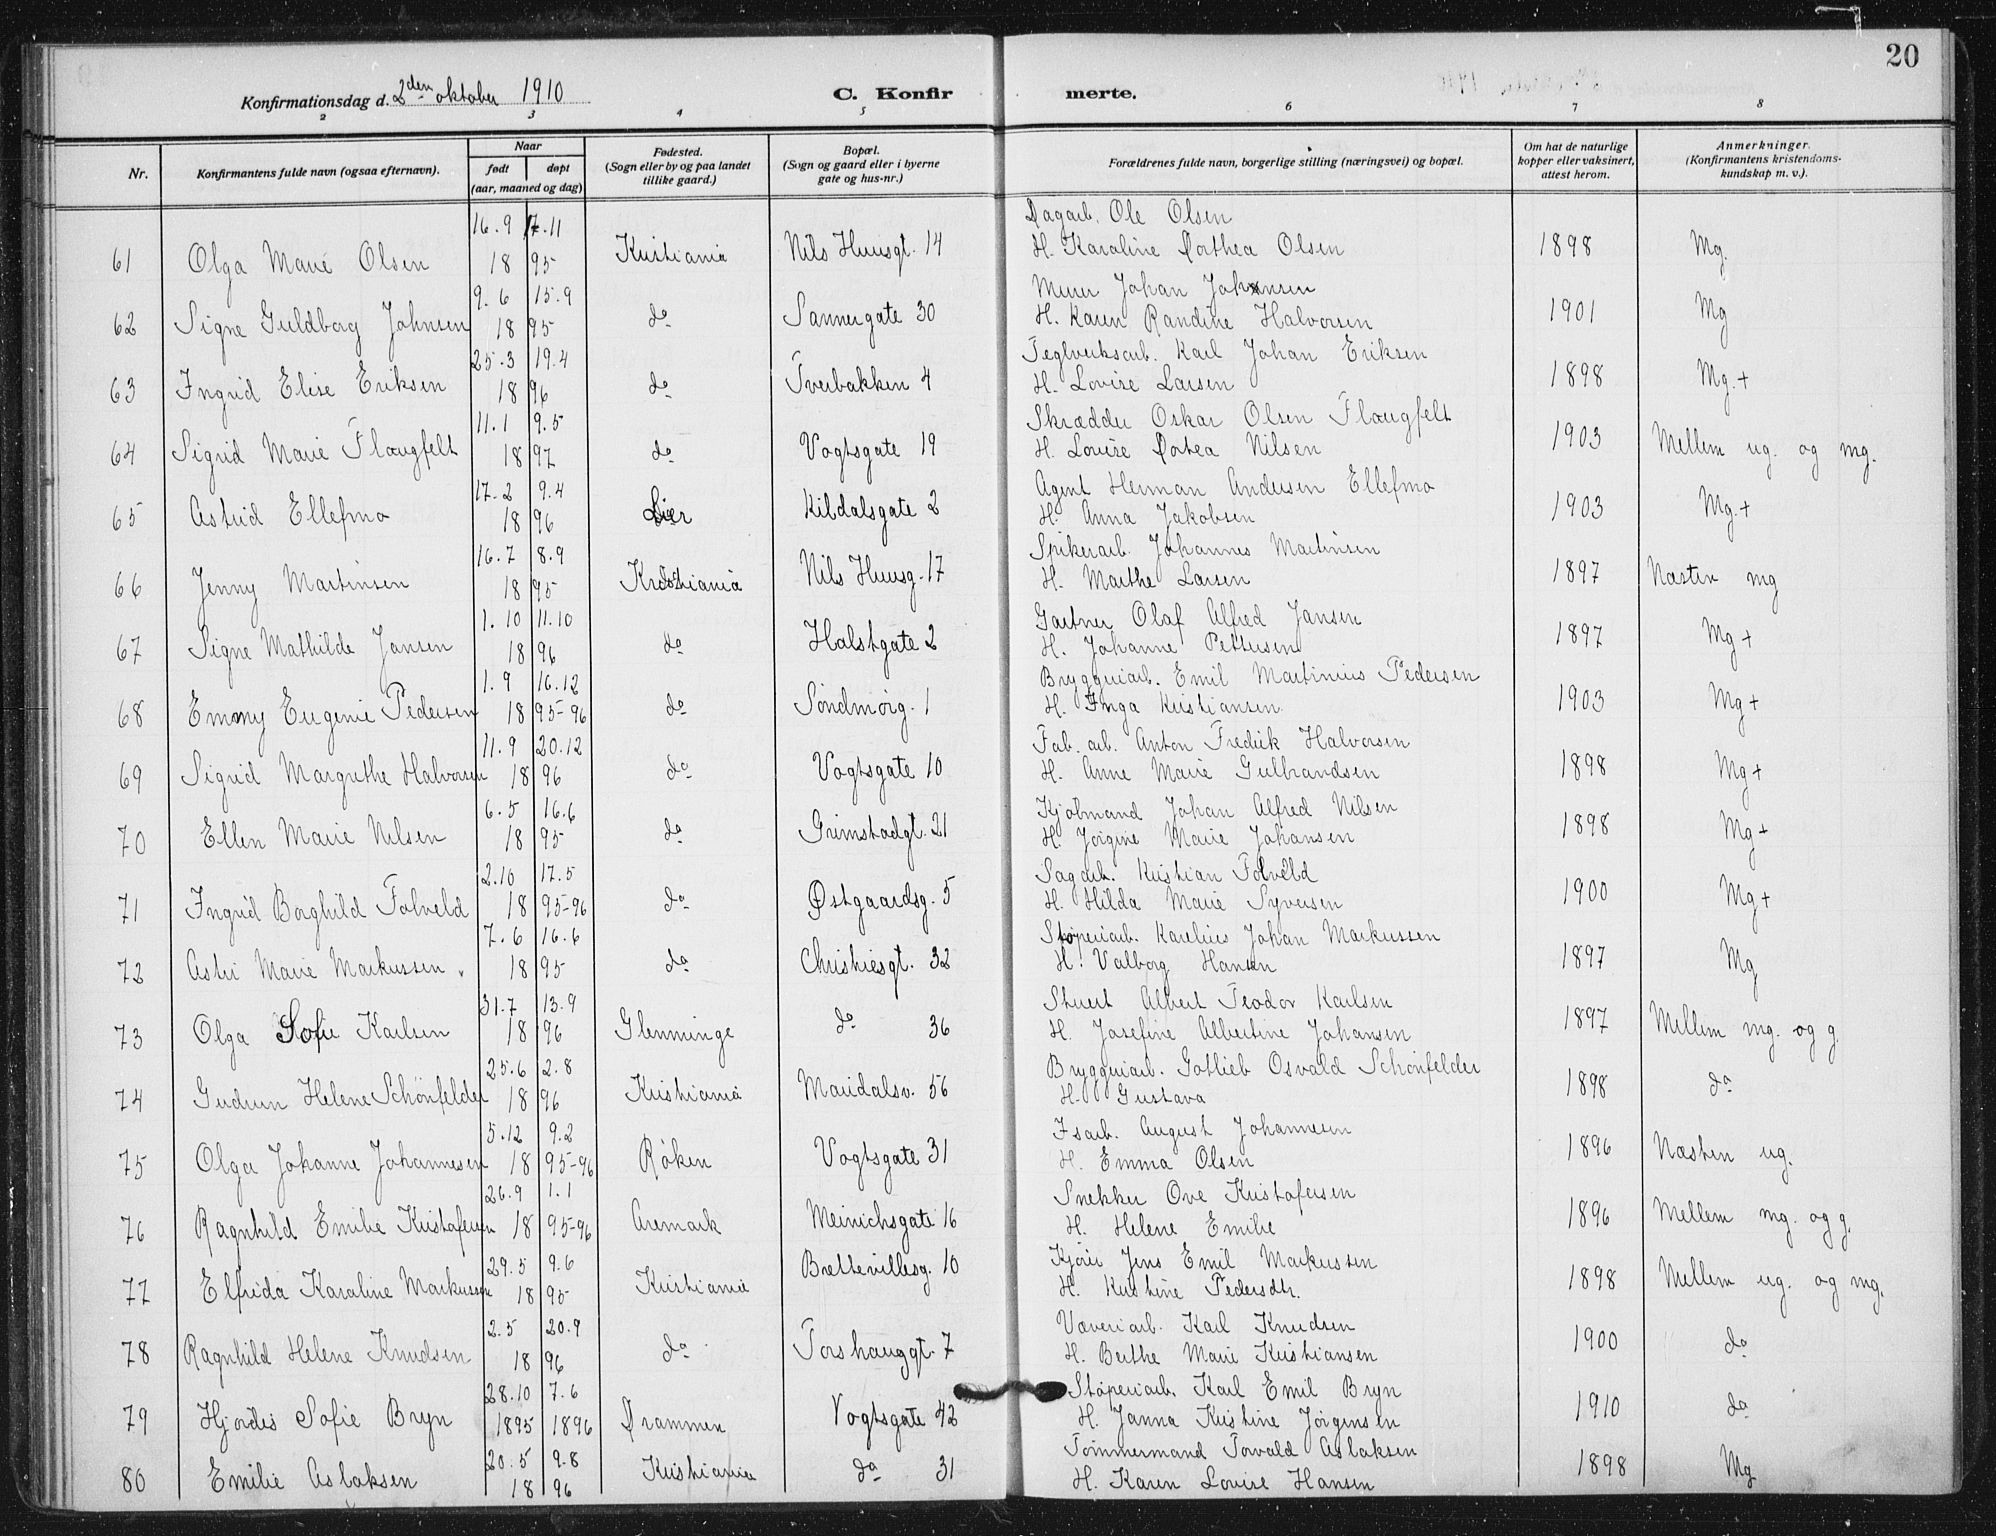 20
Konfirmationsdag d. 2den oktober 1910
C. Konfirmerte.
2 3 4 5 6 7 8
Nr.
Konfirmantens fulde navn (ogsaa efternavn).
Naar
født døpt
(aar, maaned og dag)
Fødested.
(Sogn eller by og paa landet
tillike gaard.)
Bopæl.
(Sogn og gaard eller i byerne
gate og hus-nr.)
Forældrenes fulde navn, borgerlige stilling (næringsvei) og bopæl.
Om hat de naturlige
kopper eller vaksinert,
attest herom.
Anmerkninger.
(Konfirmantens kristendoms-
kundskap m. v.).
16.9 17.11 Dagarb. Ole Olsen
61 Olga Marie Olsen 18 95 Kristiania Nils Huusgt. 14 H. Karaline Dorthea Olsen 1898 Mg.
9.6 15.9 Murer Johan Johansen
62 Signe Guldborg Johnsen 18 95 do Sannergate 30 H. Karen Randine Halvorsen 1901 Mg
25.3 19.4 Teglverksarb. Karl Johan Eriksen
63 Ingrid Elise Eriksen 18 96 do Tverbakken 4 H. Lovise Larsen 1898 Mg.+
11.1 9.5 Skrædder Oskar Olsen Flaugfelt
64 Sigrid Marie Flaugfelt 18 97 do Vogtsgate 19 H. Lovise Dortea Nilsen 1903 Mellem ug. og mg.
17.2 9.4 Agent Herman Andersen Ellefmo
65 Astrid Ellefmo 18 96 Lier Kildalsgate 2 H. Anna Jakobsen 1903 Mg.+
16.7 8.9 Spikerarb. Johannes Martinsen
66 Jenny Martinsen 18 95 Kristiania Nils Huusg. 17 H. Marthe Larsen 1897 Næsten mg
1.10 11.10 Gartner Olaf Alfred Jansen
67 Signe Mathilde Jansen 18 96 do Halstgate 2 H. Johanne Pettersen 1897 Mg+
1.9 16.12 Bryggeriarb. Emil Martinius Pedersen
68 Emmy Eugenie Pedersen 18 95-96 do Søndmørg. 1 H. Inga Kristiansen 1903 Mg+
11.9 20.12 Fab. arb. Anton Fredrik Halvorsen
69 Sigrid Margrethe Halvorsen 18 96 do Vogtsgate 10 H. Anne Marie Gulbrandsen 1898 Mg+
6.5 16.6 Kjøbmand Johan Alfred Nilsen
70 Ellen Marie Nilsen 18 95 do Grimstadgt. 21 H. Jørgine Marie Johansen 1898 Mg+
2.10 17.5 Sagarb. Kristian Folveld
71 Ingrid Borghild Folveld 18 95-96 do Østgaardsg. 5 H. Hilda Marie Syversen 1900 Mg+
7.6 16.6 Støperiarb. Karelius Johan Markussen
72 Astri Marie Markussen 18 95 do Christiesgt. 32 H. Valborg Hansen 1897 Mg
31.7 13.9 Stuert Albert Teodor Karlsen
73 Olga Sofie Karlsen 18 96 Glemminge do 36 H. Josefine Albertine Johansen 1897 Mellem mg. og g.
25.6 2.8 Bryggeriarb. Gotlieb Osvald Schönfelder
74 Gudrun Helene Schönfelder 18 96 Kristiania Maridalsv. 56 H. Gustava 1898 do
5.12 9.2 Isarb. August Johannesen
75 Olga Johanne Johannesen 18 95-96 Røken Vogtsgate 31 H. Emma Olsen 1896 Næsten ug.
26.9 1.1 Snekker Ove Kristofersen
76 Ragnhild Emilie Kristofersen 18 95-96 Aremark Meinichsgate 16 H. Helene Emilie 1896 Mellem mg. og g.
29.5 9.6 Kjører Jens Emil Markussen
77 Elfrida Karaline Markussen 18 95 Kristiania Brettevillesg. 10 H. Kristine Pedersdtr. 1898 Mellem ug. og mg.
2.5 20.9 Væveriarb. Karl Knudsen
78 Ragnhild Helene Knudsen 18 96 do Torshauggt. 7 H. Berthe Marie Kristiansen 1900 do
28.10 7.6 Støperiarb. Karl Emil Bryn
79 Hjørdis Sofie Bryn 1895 1896 Drammen Vogtsgate 42 H. Janna Kristine Jørgensen 1910 do
20.5 9.8 Tømmermand Torvald Aslaksen
80 Emilie Aslaksen 18 96 Kristiania do 31 H. Karen Lovise Hansen 1898 Mg